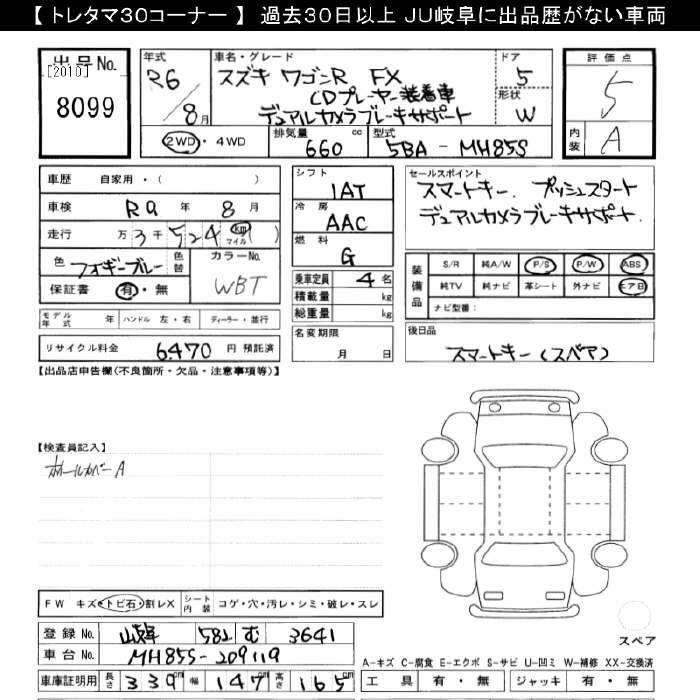 【 トレタマ30コーナー 】 過去30日以上 JU岐阜に出品歴がない車両
出品No.
[2010]
8099
年式
R6
8月
車名・グレード
スズキ ワゴンR FX
CDプレーヤー装着車
デュアルカメラブレーキサポート
ドア
5
形状
W
2WD・4WD
排気量 cc
660
型式
5BA - MH85S
評価点
5
内装
A
車歴 自家用・( )
車検 R9 年 8 月
走行 万 3 千 524 km マイル )
色 フォギーブルー 色替
カラーNo.
WBT
保証書 有・無
モデル年式 年 ハンドル 左・右 ディーラー・並行
リサイクル料金 6470 円 預託済
シフト
1AT
冷房
AAC
燃料
G
乗車定員 4 名
積載量 kg
総重量 kg
名変期限
月 日
セールスポイント
スマートキー. プッシュスタート
デュアルカメラブレーキサポート
装備品
S/R 純A/W P/S P/W ABS
純TV 純ナビ 革シート 外ナビ エアB
ナビ型番:
後日品
スマートキー(スペア)
【出品店申告欄(不良箇所・欠品・注意事項等)】
【検査員記入】
ホールカバーA
FW キズ・トビ石・割レX シート内装 コゲ・穴・汚レ・シミ・破レ・スレ
登録No. 582 む 3641
車台No. MH85S-209119
車庫証明用 長さ 339cm 幅 147cm 高さ 165cm
スペア
A-キズ C-腐食 E-エクボ S-サビ U-凹ミ W-補修 XX-交換済
工具 有・無 ジャッキ 有・無